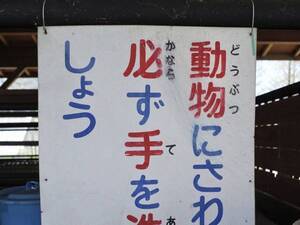 どうぶつ
動物にさわ
かなら て あ
必ず手を洗
しょう